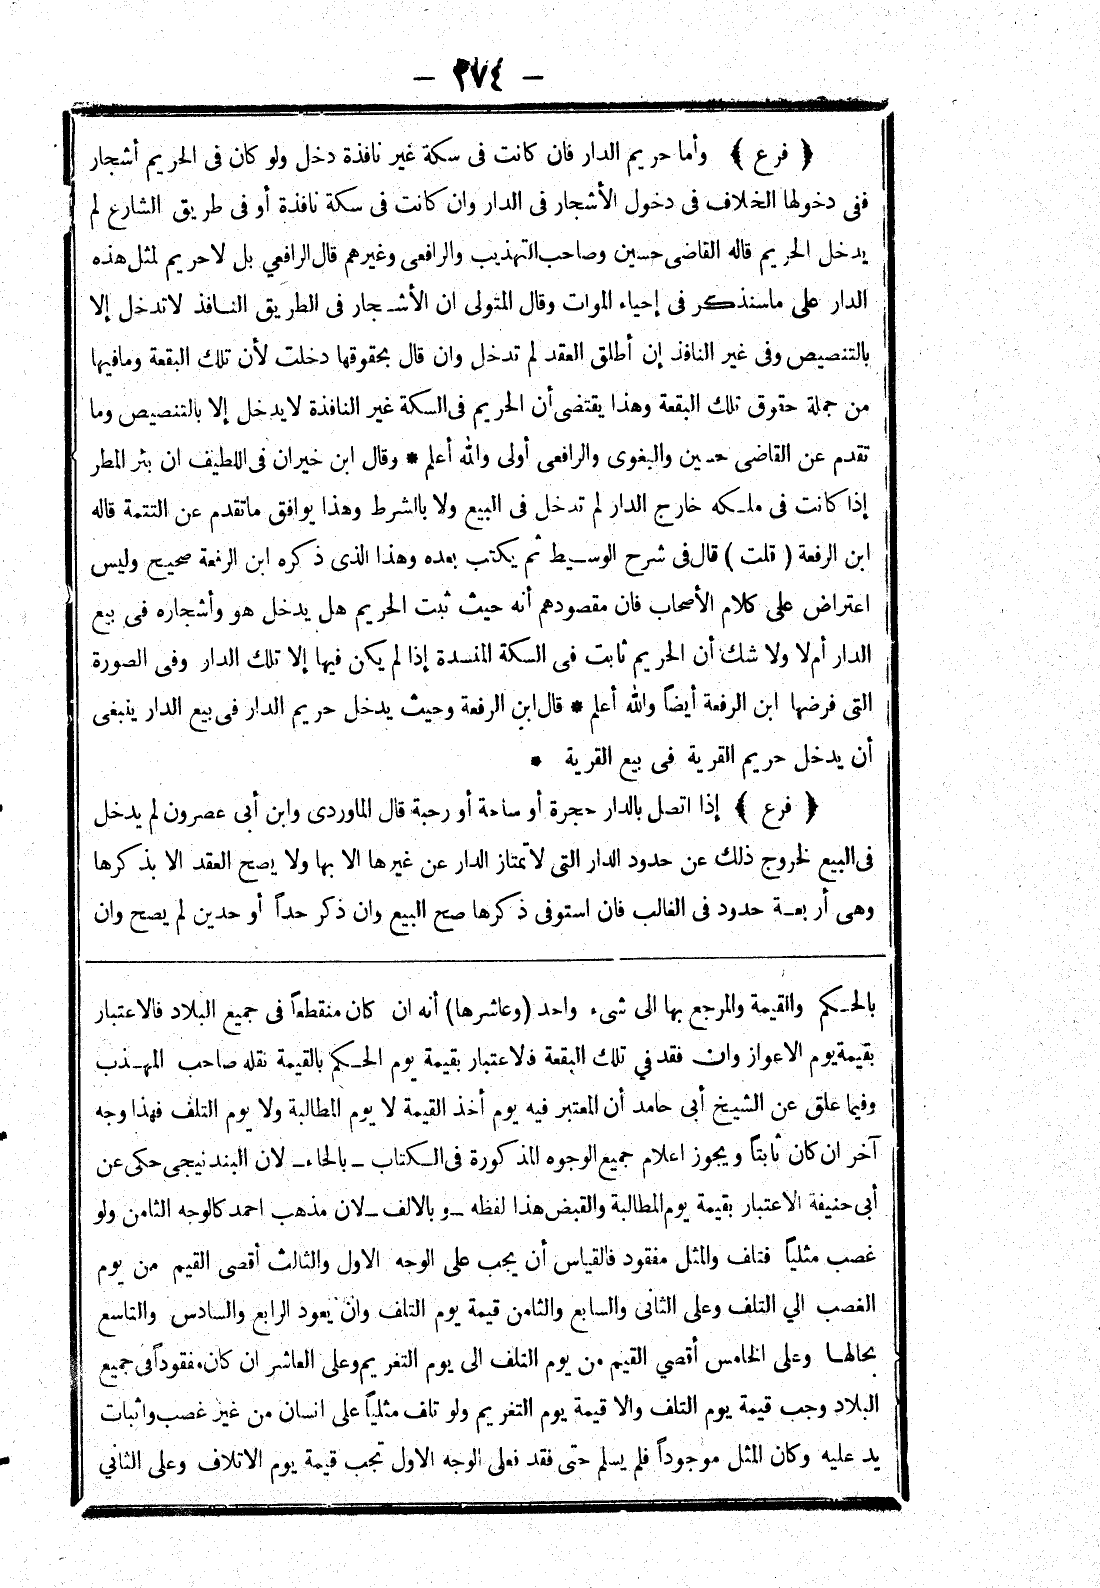 — ٢٧٤ —
﴿ فرع ﴾ وأما حريم الدار فان كانت فى سكة غير نافذة دخل ولو كان فى الحريم أشجار
ففى دخولها الخلاف فى دخول الأشجار فى الدار وان كانت فى سكة نافذة أو فى طريق الشارع لم
يدخل الحريم قاله القاضى حسين وصاحب التهذيب والرافعى وغيرهم قال الرافعي بل لا حريم لمثل هذه
الدار على ماسنذكر فى إحياء الموات وقال المتولى ان الأشجار فى الطريق النافذ لا تدخل إلا
بالتنصيص وفى غير النافذ إن أطلق العقد لم تدخل وان قال بحقوقها دخلت لأن تلك البقعة ومافيها
من جملة حقوق تلك البقعة وهذا يقتضى أن الحريم فى السكة غير النافذة لا يدخل إلا بالتنصيص وما
تقدم عن القاضى حسين والبغوى والرافعى أولى والله أعلم * وقال ابن خيران فى اللطيف ان بئر المطر
إذا كانت فى ملكه خارج الدار لم تدخل فى البيع ولا باالشرط وهذا يوافق ماتقدم عن التتمة قاله
ابن الرفعة ( قلت ) قال فى شرح الوسيط ثم يكتب بعده وهذا الذى ذكره ابن الرفعة صحيح وليس
اعتراض على كلام الأصحاب فان مقصودهم أنه حيث ثبت الحريم هل يدخل هو وأشجاره فى بيع
الدار أم لا ولا شك أن الحريم ثابت فى السكة المنسدة إذا لم يكن فيها إلا تلك الدار وفى الصورة
التى فرضها ابن الرفعة أيضاً والله أعلم * قال ابن الرفعة وحيث يدخل حريم الدار فى بيع الدار ينبغى
أن يدخل حريم القرية فى بيع القرية *
﴿ فرع ﴾ إذا اتصل بالدار حجرة أو ساحة أو رحبة قال الماوردى وابن أبى عصرون لم يدخل
فى البيع لخروج ذلك عن حدود الدار التى لا تمتاز الدار عن غيرها الا بها ولا يصح العقد الا بذكرها
وهى أربعة حدود فى الغالب فان استوفى ذكرها صح البيع وان ذكر حداً أو حدين لم يصح وان
بالحكم والقيمة والمرجع بها الى شىء واحد (وعاشرها) أنه ان كان منقطعاً فى جميع البلاد فالاعتبار
بقيمة يوم الاعواز وان فقد في تلك البقعة فالاعتبار بقيمة يوم الحكم بالقيمة نقله صاحب المهذب
وفيما علق عن الشيخ أبى حامد أن المعتبر فيه يوم أخذ القيمة لا يوم المطالبة ولا يوم التلف فهذا وجه
آخر ان كان ثابتاً ويجوز اعلام جميع الوجوه المذكورة فى الكتاب ـ بالحاء ـ لان البندنيجى حكى عن
أبى حنيفة الاعتبار بقيمة يوم المطالبة والقبض هذا لفظه ـ وبالالف ـ لان مذهب احمد كالوجه الثامن ولو
غصب مثلياً فتلف والمثل مفقود فالقياس أن يجب على الوجه الاول والثالث أقصى القيم من يوم
الغصب الي التلف وعلى الثانى والسابع والثامن قيمة يوم التلف وان يعود الرابع والسادس والتاسع
بحالها وعلى الخامس أقصي القيم من يوم التلف الى يوم التغريم وعلى العاشر ان كان مفقوداً فى جميع
البلاد وجب قيمة يوم التلف والا قيمة يوم التغريم ولو تلف مثلياً على انسان من غير غصب واثبات
يد عليه وكان المثل موجوداً فلم يسلم حتى فقد فعلى الوجه الاول تجب قيمة يوم الاتلاف وعلى الثاني